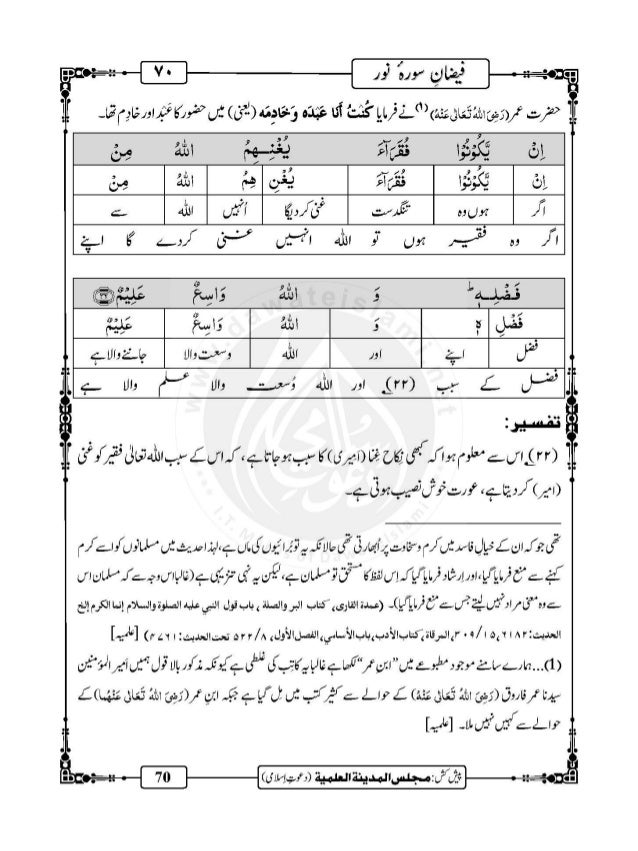 فیضانِ سورۂ نور
۷۰
حضرت عمر (رَضِیَ اللہُ تَعَالٰی عَنْہُ) (1) نے فرمایا کُنْتُ أَنَا عَبْدَہ وَخَادِمَہ (یعنی) میں حضور کا عَبْد اور خادِم تھا۔
اِنْ یَّكُوْنُوْا فُقَرَآءَ یُغْنِهِمُ اللّٰهُ مِنْ
اِنْ یَّكُوْنُوْا فُقَرَآءَ یُغْنِ هِمُ اللّٰهُ مِنْ
اگر ہوں وہ تنگدست غنی کردیگا اُنہیں اللہ سے
اگر وہ فقیر ہوں تو اللہ انہیں غنی کردے گا اپنے
فَضْلِهٖؕ وَ اللّٰهُ وَاسِعٌ عَلِیْمٌ ﴿۳۲﴾
فَضْلِ هٖ وَ اللّٰهُ وَاسِعٌ عَلِیْمٌ
فضل اپنے اور اللہ وسعت والا جاننے والا ہے
فضل کے سبب (۲۲) اور اللہ وُسعت والا علم والا ہے
تفسیر:
(۲۲) اس سے معلوم ہوا کہ کبھی نِکاح غِنا (اَمیری) کا سبب ہوجاتا ہے، کہ اس کے سبب اللہ تعالٰی فقیر کو غنی
(امیر) کردیتا ہے، عورت خوش نصیب ہوتی ہے۔
تھی جو کہ ان کے خیالِ فاسد میں کرم و سخاوت پر اُبھارتی تھی حالانکہ یہ تو بُرائیوں کی ماں ہے، لہٰذا حدیث میں مسلمانوں کو اسے کرم
کہنے سے منع فرمایا گیا، اور اِرشاد فرمایا گیا کہ اِس لفظ کا مستحق تو مسلمان ہے، لیکن یہ نہی تنزیہی ہے (غالباً اس وجہ سے کہ مسلمان اس
سے وہ معنی مراد نہیں لیتے جس سے منع فرمایا گیا)۔ (عمدة القاری، کتاب البر والصلة، باب قول النبی علیه الصلوة والسلام إنما الكرم إلخ
الحدیث: ۶۱۸۲، ۱۵/۳۰۹، المرقاة، کتاب الأدب، باب الأسامي، الفصل الأول، ۸/۵۲۲ تحت الحدیث: ۴۷۶۱) [علمیہ]
(1)... ہمارے سامنے موجود مطبوعے میں "ابن عمر" لکھا ہے غالباً یہ کاتِب کی غلطی ہے کیونکہ مذکور بالا قول ہمیں امیر المؤمنین
سیدنا عمر فاروق (رَضِیَ اللہُ تَعَالٰی عَنْہُ) کے حوالے سے کثیر کتب میں مِل گیا ہے جبکہ ابنِ عمر (رَضِیَ اللہُ تَعَالٰی عَنْہُما) کے
حوالے سے کہیں نہیں ملا۔ [علمیہ]
پیش کش: مجلس المدینة العلمیة (دعوتِ اسلامی)
70
www.dawateislami.net